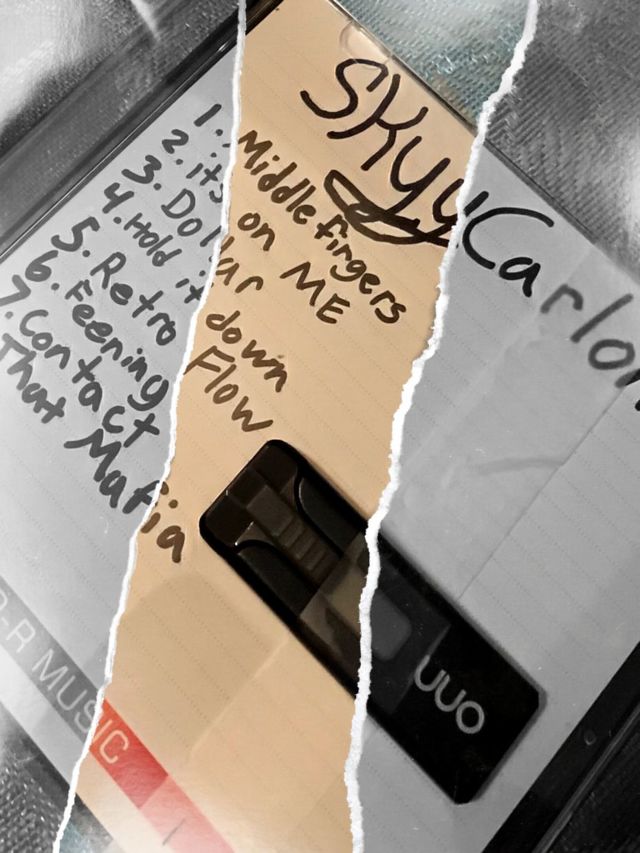 SKyyCarlon
1. Middle fingers
2. its on ME
3. Dollar
4. Hold it down
5. Retro Flow
6. Feening
7. Contact
That Mafia
UUO
D-R MUSIC